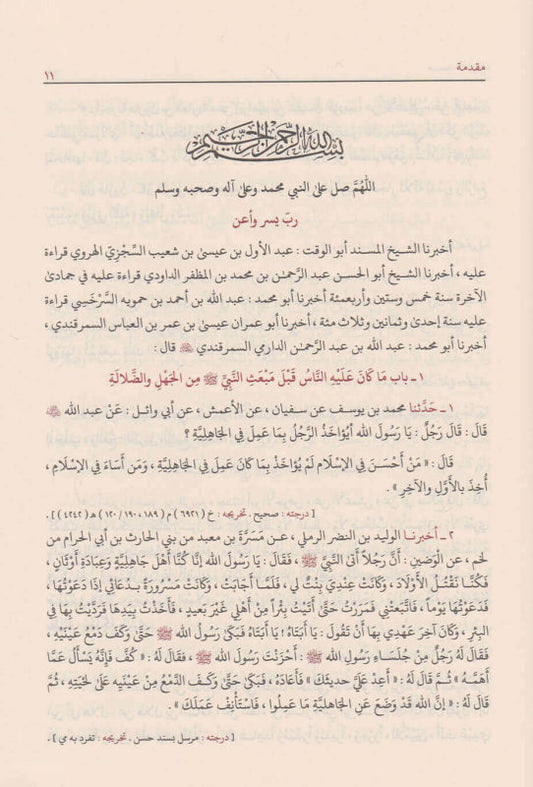 مقدمة
١١
بسم الله الرحمن الرحيم
اللهُمَّ صل على النبي محمد وعلى آله وصحبه وسلم
ربّ يسر وأعن
أخبرنا الشيخ المسند أبو الوقت : عبد الأول بن عيسىٰ بن شعيب السِّجْزِي الهروي قراءة
عليه ، أخبرنا الشيخ أبو الحسن عبد الرحمٰن بن محمد بن المظفر الداودي قراءة عليه في جمادىٰ
الآخرة سنة خمس وستين وأربعمئة أخبرنا أبو محمد : عبد الله بن أحمد بن حمويه السَّرْخَسِي قراءة
عليه سنة إحدىٰ وثمانين وثلاث مئة ، أخبرنا أبو عمران عيسىٰ بن عمر بن العباس السمرقندي ،
أخبرنا أبو محمد : عبد الله بن عبد الرحمٰن الدارمي السمرقندي ﷺ قال :
١ ـ باب مَا كَانَ عَلَيْهِ النَّاسُ قَبْلَ مَبْعَثِ النَّبِيِّ ﷺ مِنَ الجَهْلِ والضَّلالَةِ
١ ـ حَدَّثنا محمد بن يوسف عن سفيان ، عن الأعمش ، عن أبي وائل : عَنْ عبد الله
قَالَ : قَالَ رَجُلٌ : يَا رَسُولَ الله أَيُؤَاخَذُ الرَّجُلُ بِمَا عَمِلَ فِي الجَاهِلِيَّةِ ؟
قَالَ : « مَنْ أَحْسَنَ فِي الإِسْلَامِ لَمْ يُؤَاخَذْ بِمَا كَانَ عَمِلَ فِي الجَاهِلِيَّةِ ، وَمَن أَسَاءَ فِي الإِسْلَامِ ،
أُخِذَ بِالأَوَّلِ والآخِرِ » .
[ درجته : صحيح ، تخريجه : خ ( ٦٩٢١ ) م ( ١٨٩ ، ١٩٠ / ١٢٠ ) هـ ( ٤٢٤٢ ) ] .
٢ ـ أخبرنا الوليد بن النضر الرملي ، عن مَسَرَّةَ بن معبد من بني الحارث بن أبي الحرام من
لخم ، عن الْوَضِينِ : أَنَّ رَجُلاً أَتَى النَّبِيَّ ﷺ ، فَقَالَ : يَا رَسُولَ الله إِنَّا كُنَّا أَهْلَ جَاهِلِيَّةٍ وَعِبَادَةِ أَوْثَانٍ ،
فَكُنَّا نَقْتُلُ الأَوْلَادَ ، وَكَانَتْ عِنْدِي بِنْتٌ لِي ، فَلَمَّا أَجَابَتْ ، وَكَانَتْ مَسْرُورَةً بِدُعَائِي إِذَا دَعَوْتُهَا ،
فَدَعَوْتُهَا يَوْماً ، فَاتَّبَعَتْنِي فَمَرَرْتُ حَتَّى أَتَيْتُ بِئْراً مِنْ أَهْلِي غَيْرَ بَعِيدٍ ، فَأَخَذْتُ بِيَدِهَا فَرَدَّيْتُ بِهَا فِي
البِئْرِ ، وَكَانَ آخِرَ عَهْدِي بِهَا أَنْ تَقُولَ : يَا أَبَتَاهُ ! يَا أَبَتَاهُ فَبَكَىٰ رَسُولُ الله ﷺ حَتَّىٰ وَكَفَ دَمْعُ عَيْنَيْهِ ،
فَقَالَ لَهُ رَجُلٌ مِنْ جُلَسَاءِ رَسُولِ الله ﷺ : أَحْزَنْتَ رَسُولَ الله ﷺ ، فقال له : « كُفَّ فَإِنَّهُ يَسْأَلُ عَمَّا
أَهَمَّهُ » ثُمَّ قَالَ لَهُ : « أَعِدْ عَلَيَّ حديثكَ » فَأَعَادَهُ ، فَبَكىٰ حَتَّىٰ وَكَفَ الدَّمْعُ مِنْ عَيْنَيْهِ عَلَىٰ لِحْيَتِهِ ، ثُمَّ
قَالَ لَهُ : « إِنَّ الله قَدْ وَضَعَ عَنِ الجَاهِلِيَّةِ مَا عَمِلُوا ، فَاسْتَأْنِفْ عَمَلَكَ » .
[ درجته : مرسل بسند حسن ، تخريجه : تفرد به مي ] .